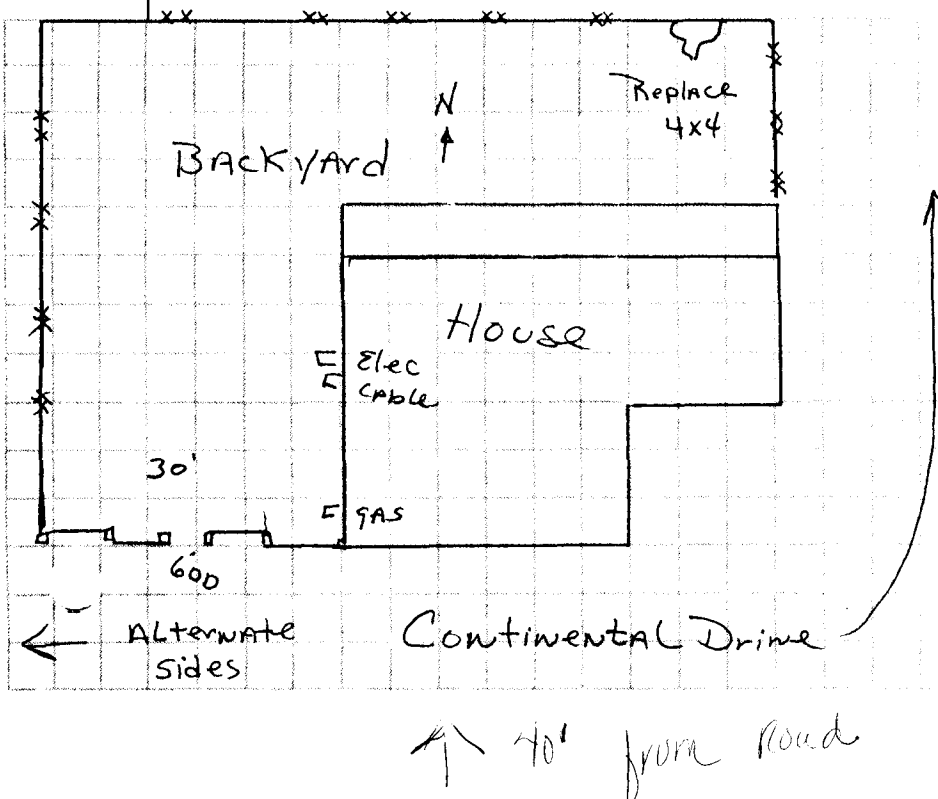 N
Replace
4x4
BACKYArd
House
Elec
Cable
30'
gAS
60D
ALternate
sides
Continental Drive
40' from Road